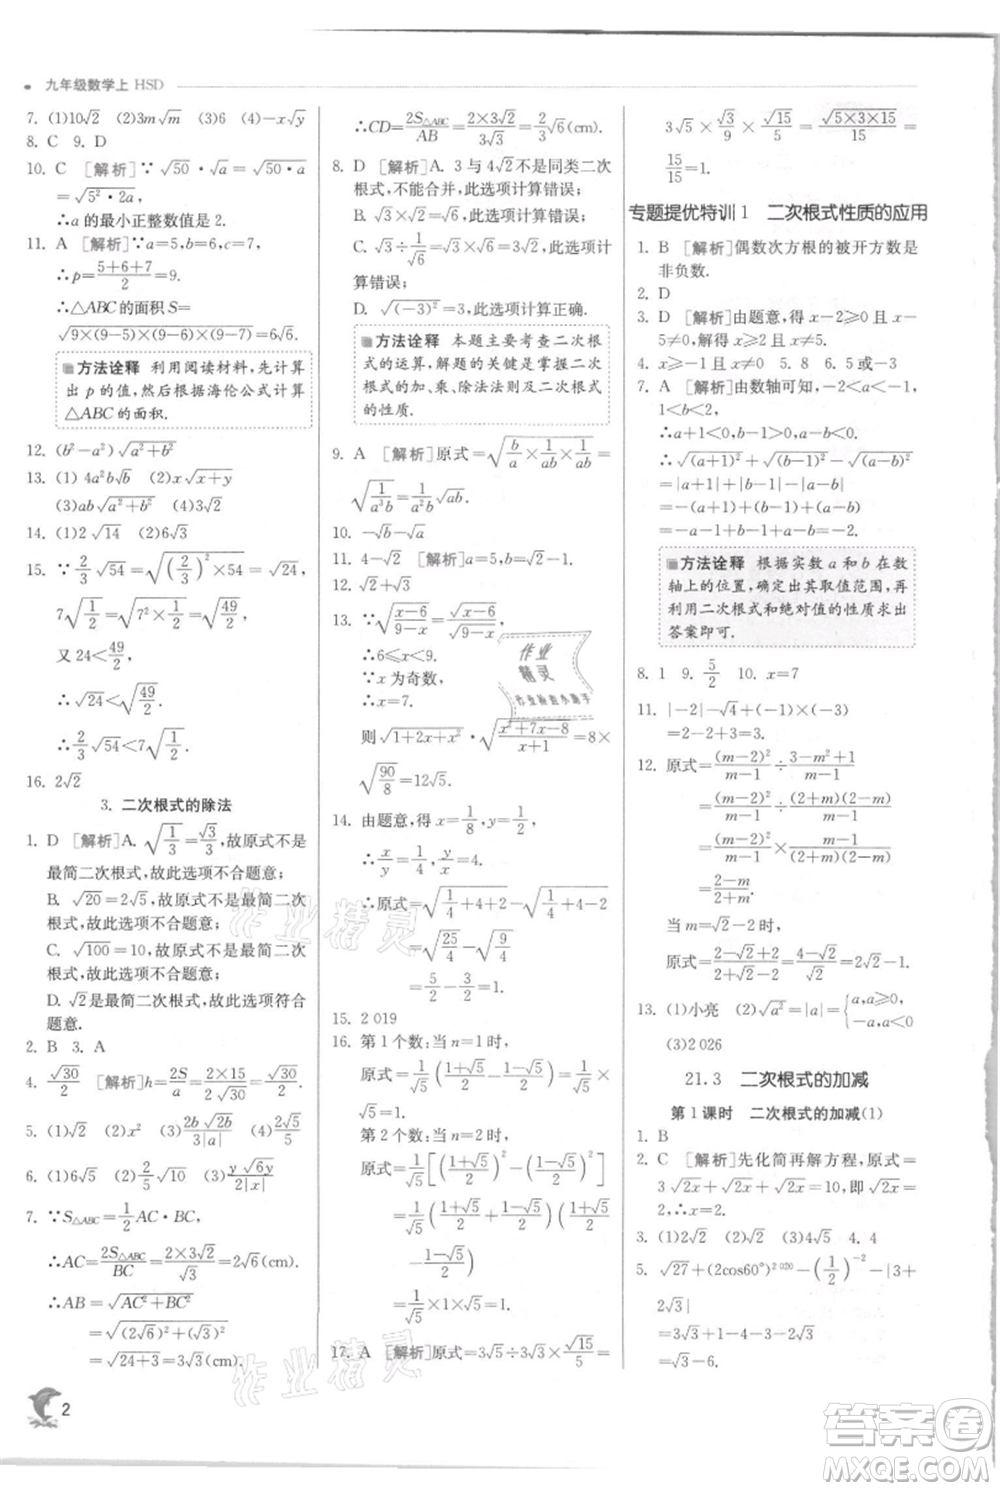 九年级数学上 HSD
7. (1)10√2 (2)3m√m (3)6 (4)-x√y
8. C 9. D
10. C [解析]∵√50·√a=√(50·a)
=√(5²·2a),
∴a的最小正整数值是2.
11. A [解析]∵a=5,b=6,c=7,
∴p=(5+6+7)/2=9.
∴△ABC的面积S=
√(9×(9-5)×(9-6)×(9-7))=6√6.
方法诠释 利用阅读材料,先计算
出p的值,然后根据海伦公式计算
△ABC的面积.
12. (b²-a²)√(a²+b²)
13. (1)4a²b√b (2)x√(x+y)
(3)ab√(a²+b²) (4)9√2
14. (1)2√14 (2)6√3
15. ∵(2/3)√54=√((2/3)²×54)=√24,
7√(1/2)=√(7²×1/2)=√(49/2),
又24<49/2,
∴√24<√(49/2),
∴(2/3)√54<7√(1/2).
16. 2√2
3. 二次根式的除法
1. D [解析]A. √(1/3)=√3/3,故原式不是
最简二次根式,故此选项不合题意;
B. √20=2√5,故原式不是最简二次
根式,故此选项不合题意;
C. √100=10,故原式不是最简二次
根式,故此选项不合题意;
D. √2是最简二次根式,故此选项符合
题意.
2. B 3. A
4. √30/2 [解析]h=2S/a=(2×15)/(2√30)=√30/2.
5. (1)√2 (2)x² (3)2b√(2b)/(3|a|) (4)2√5/5
6. (1)√6 (2)√15/5 (3)y√(6y)/(2|x|)
7. ∵S△ABC=(1/2)AC·BC,
∴AC=2S△ABC/BC=(2×3√2)/√3=2√6(cm).
∴AB=√(AC²+BC²)
=√((2√6)²+(√3)²)
=√(24+3)=3√3(cm).
∴CD=2S△ABC/AB=(2×3√2)/(3√3)=2√6/3(cm).
8. D [解析]A. 3与4√2不是同类二次
根式,不能合并,此选项计算错误;
B. √3×√2=√6,此选项计算错误;
C. √3÷1/√3=√3×√3=3,此选项
计算错误;
D. √((-3)²)=3,此选项计算正确.
方法诠释 本题主要考查二次根
式的运算,解题的关键是掌握二次
根式的加、乘、除法法则及二次根式
的性质.
9. A [解析]原式=√(b/a×1/ab×1/ab)=
√(1/(a³b))=(1/(a²b))√(ab).
10. -√b-√a
11. 4-√2 [解析]a=5,b=√2+1.
12. √2+√3
13. ∵√((x-6)/(9-x))=√(x-6)/√(9-x),
∴6≤x<9.
∵x为奇数,
∴x=7.
则√(1+2x+x²)·√((x²+7x-8)/(x+1))=8×
√(90/8)=12√5.
14. 由题意,得x=1/8,y=1/2,
∴x/y=1/4,y/x=4.
∴原式=√(1/4+4+2)-√(1/4+4-2)
=√(25/4)-√(9/4)
=5/2-3/2
=1.
15. 2 019
16. 第1个数:当n=1时,
原式=(1/√5)((1+√5)/2-(1-√5)/2)=(1/√5)
×√5=1.
第2个数:当n=2时,
原式=(1/√5)[((1+√5)/2)²-((1-√5)/2)²]
=(1/√5)×((1+√5)/2+(1-√5)/2)((1+√5)/2
-(1-√5)/2)
=(1/√5)×1×√5=1.
17. A [解析]原式=3√5÷3√3×√15/5=
3√5×√3/9×√15/5=√(5×3×15)/15=
15/15=1.
专题提优特训1 二次根式性质的应用
1. B [解析]偶数次方根的被开方数是
非负数.
2. D
3. D [解析]由题意,得x-2≥0且x-
5≠0,解得x≥2且x≠5.
4. x≥-1且x≠0 5. 5 6. 5或-3
7. A [解析]由数轴可知,-2<a<-1,
1<b<2,
∴a+1<0,b-1>0.
∴√((a+1)²)+√((b-1)²)-√((a-b)²)
=|a+1|+|b-1|-|a-b|
=-(a+1)+(b-1)+(a-b)
=-a-1+b-1+a-b=-2.
方法诠释 根据实数a和b在数
轴上的位置,确定出其取值范围,再
利用二次根式和绝对值的性质求出
答案即可.
8. 1 9. 5/2 10. x=7
11. |-2|-√4+(-2)×(-3)
=2-2+3=3.
12. 原式=(m-2)²/(m-1)÷(3-m²+1)/(m-1)
=(m-2)²/(m-1)÷(4-m²)/(m-1)
=(m-2)²/(m-1)·(m-1)/((2-m)(2+m))
=(2-m)/(2+m).
当m=√2-2时,
原式=(2-√2+2)/(2+√2-2)=(4-√2)/√2=2√2-1.
13. (1)小亮 (2)√(a²)=|a|={a,a≥0, -a,a<0
(3)2 026
21.3 二次根式的加减
第1课时 二次根式的加减(1)
1. B
2. C [解析]先化简再解方程,原式=
3√(2x)+√(2x)+√(2x)=10,即√(2x)=2,
∴x=2.
3. (1)2√2 (2)√3 (3)4√5 4. 4
5. √27+(2cos60°)^2 020-(1/2)^-2-|3+
2√3|
=3√3+1-4-3-2√3
=√3-6.
2
作业
精灵
作业检查小助手
作业精灵
作业精灵
答案圈
MXQE.COM